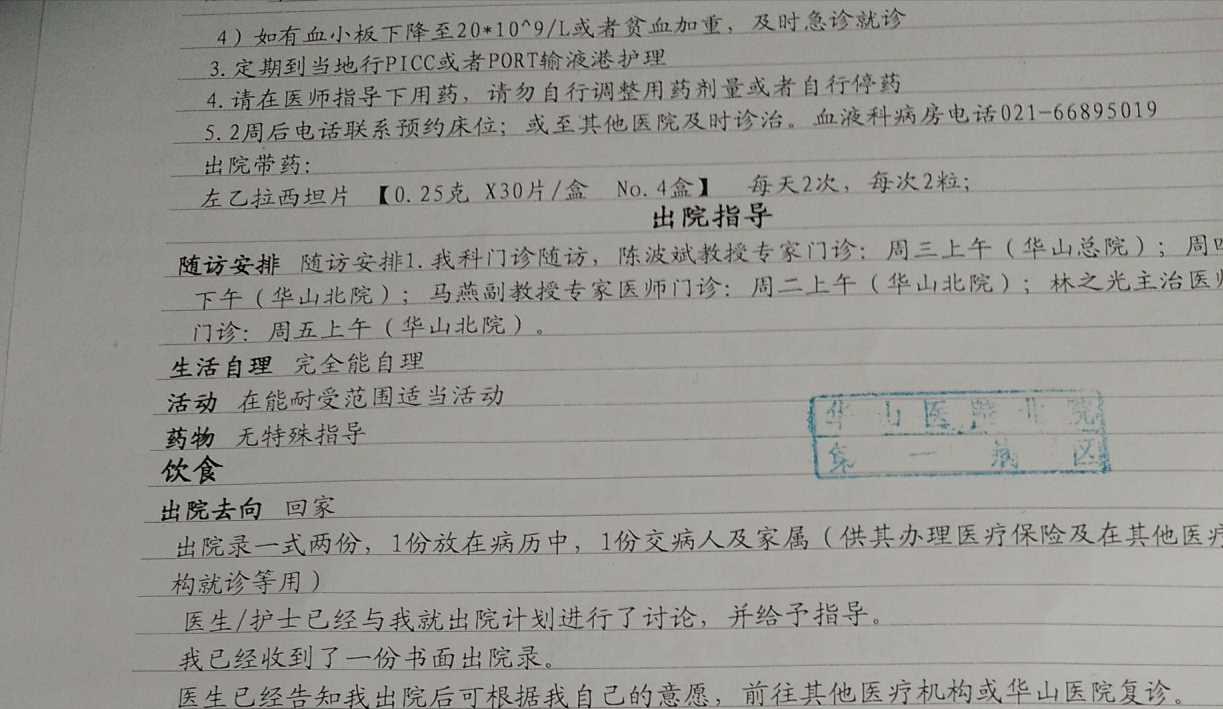 4）如有血小板下降至20*10^9/L或者贫血加重，及时急诊就诊
3.定期到当地行PICC或者PORT输液港护理
4.请在医师指导下用药，请勿自行调整用药剂量或者自行停药
5.2周后电话联系预约床位；或至其他医院及时诊治。血液科病房电话021-66895019
出院带药：
左乙拉西坦片 【0.25克 X30片/盒 No.4盒】 每天2次，每次2粒；
出院指导
随访安排 随访安排1.我科门诊随访，陈波斌教授专家门诊：周三上午（华山总院）；周四
下午（华山北院）；马燕副教授专家医师门诊：周二上午（华山北院）；林之光主治医师
门诊：周五上午（华山北院）。
生活自理 完全能自理
活动 在能耐受范围适当活动
药物 无特殊指导
华山医院北院
第一病区
饮食
出院去向 回家
出院录一式两份，1份放在病历中，1份交病人及家属（供其办理医疗保险及在其他医疗
构就诊等用）
医生/护士已经与我就出院计划进行了讨论，并给予指导。
我已经收到了一份书面出院录。
医生已经告知我出院后可根据我自己的意愿，前往其他医疗机构或华山医院复诊。